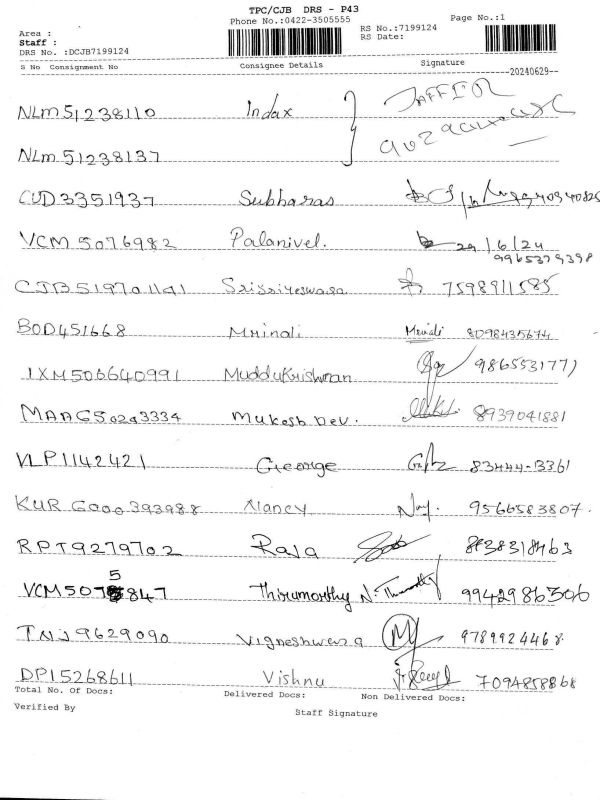 TPC/CJB DRS - P43
Phone No.:0422-3505555
Page No.:1
Area :
RS No.:7199124
Staff :
RS Date:
DRS No. :DCJB7199124
S No Consignment No Consignee Details Signature
20240629
NLM51238110 Indax JAFFIER
NLM51238137
CUD3351937 Subharas
VCM5076982 Palanivel. 29/6/24
9965379398
CJB519701141 7598911585
BOD451668 Mrinali Mrinali 8098435674
IXM506640991 Muddukrishnan 9865531771
MAAG50293334 Mukesh Dev. 8939041881
VLP1142421 George 83444-13361
KUR G000393988 Nancy 9566583807.
RPT9279702 Raja 8838318463
5
VCM507 847 Thirumorthy 9942986306
TNJ9629090 Vigneshwara 9789924468.
DP15268611 Vishnu 7094858868
Total No. Of Docs: Delivered Docs: Non Delivered Docs:
Verified By Staff Signature